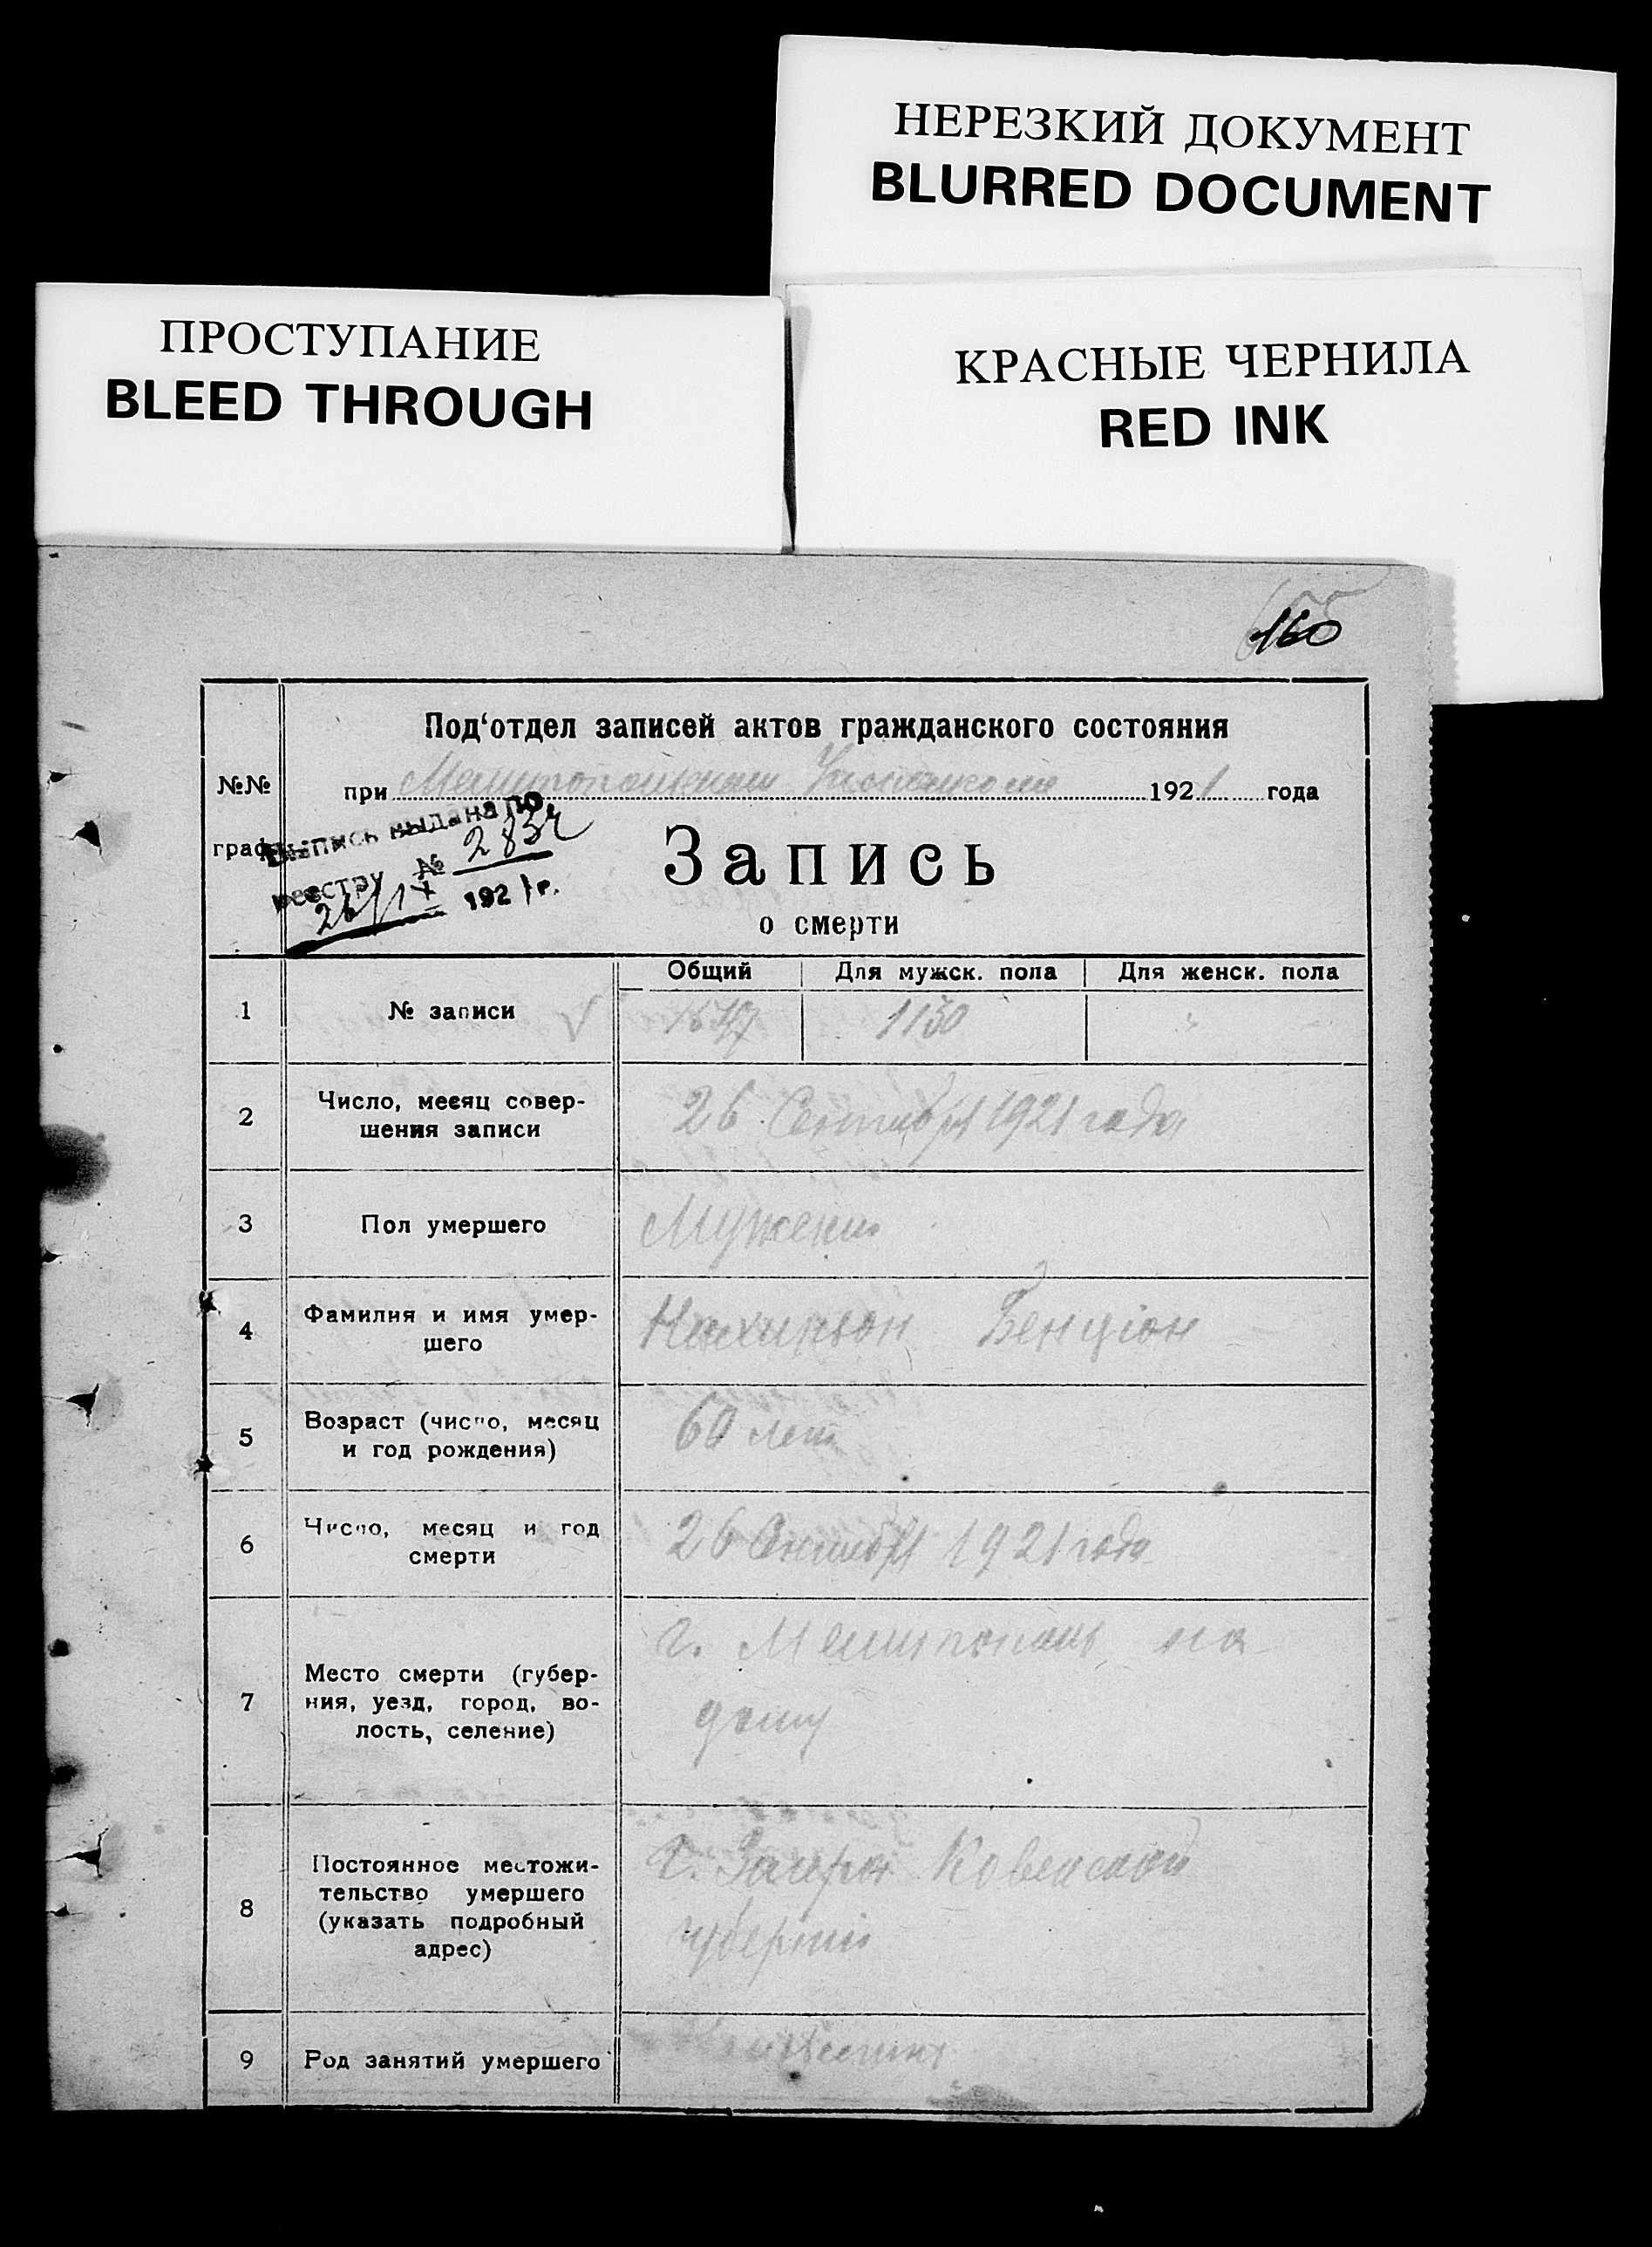 НЕРЕЗКИЙ ДОКУМЕНТ
BLURRED DOCUMENT
ПРОСТУПАНИЕ
BLEED THROUGH
КРАСНЫЕ ЧЕРНИЛА
RED INK
160
Под‘отдел записей актов гражданского состояния
№№
при 1921 года
граф
выдана по
реестру № 2832
26/IX 1921 г.
Запись
о смерти
Общий Для мужск. пола Для женск. пола
1 № записи 1130
2 Число, месяц совер-
шения записи
26 Сентября 1921 года
3 Пол умершего
4 Фамилия и имя умер-
шего
Бенціон
5 Возраст (число, месяц
и год рождения)
60 лет
6 Число, месяц и год
смерти
26 Сентября 1921 года
7 Место смерти (губер-
ния, уезд, город, во-
лость, селение)
г. Мелитополь, на
дому
8 Постоянное местожи-
тельство умершего
(указать подробный
адрес)
г. Ковенской
губернии
9 Род занятий умершего